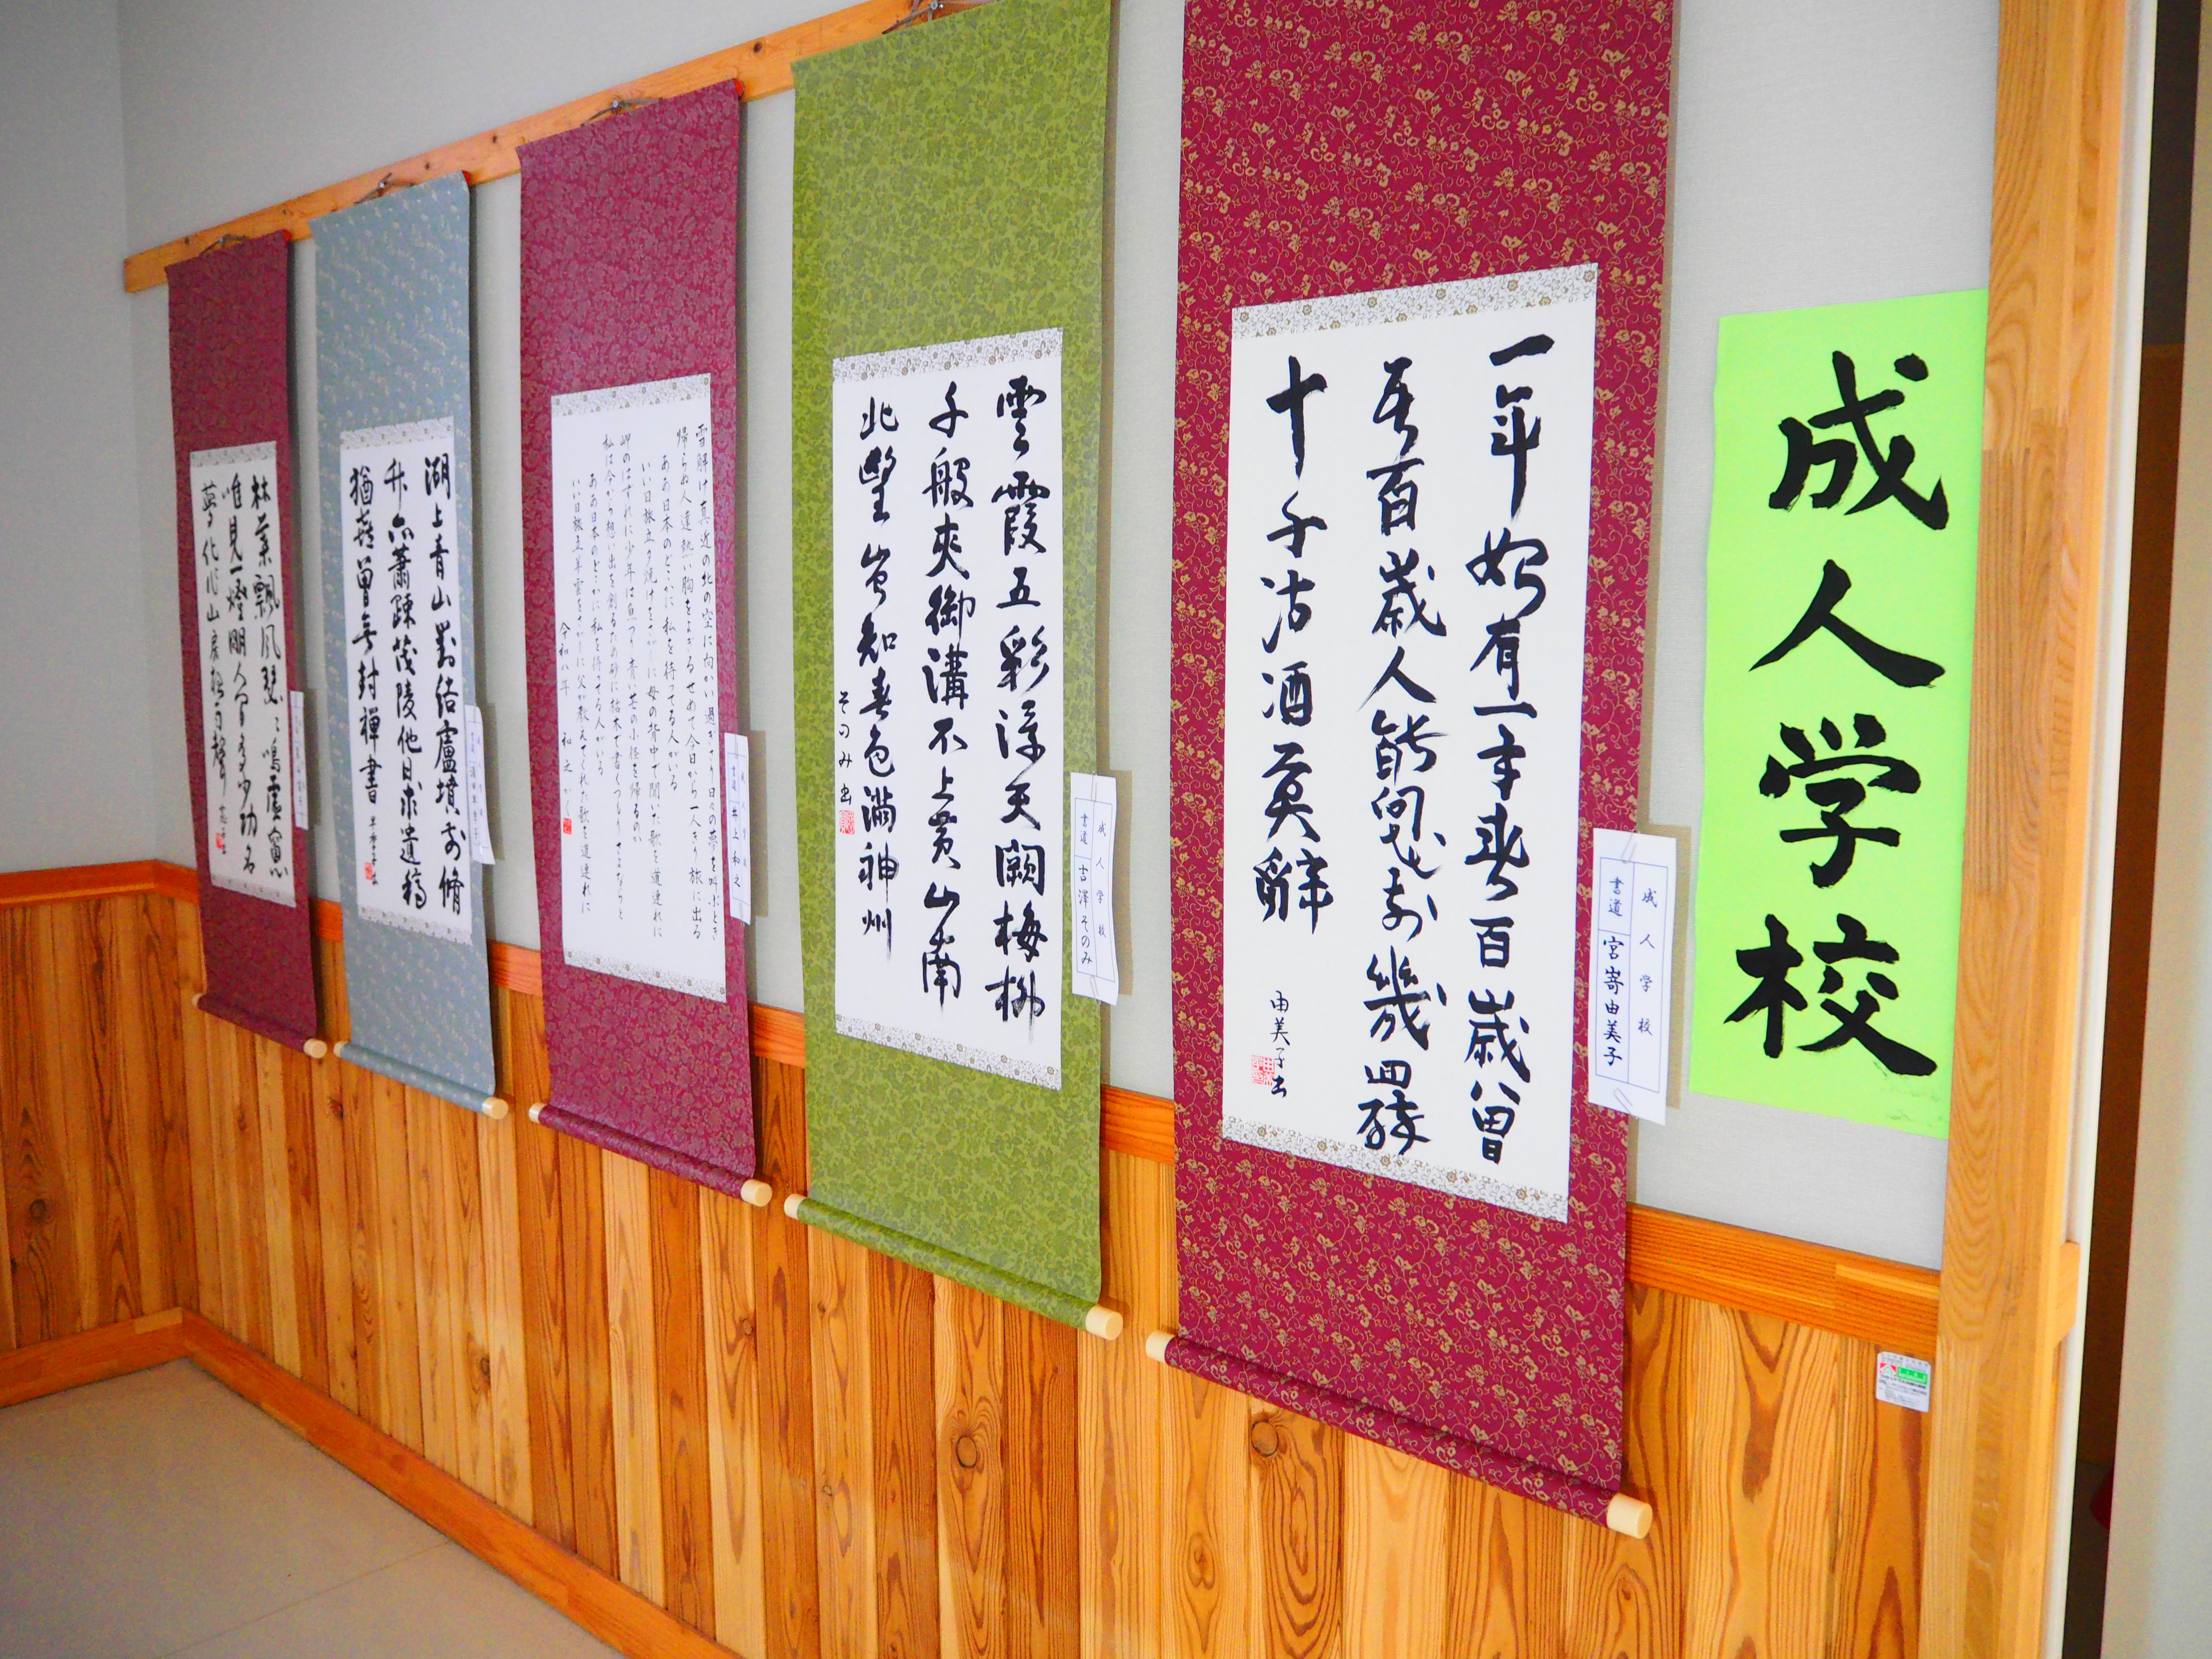 成人学校
成人学校
書道 宮嵜由美子
一年始有一年春百歳曽
無百歳人能向花前幾回酔
十千沽酒莫辭
由美子書
成人学校
書道 吉澤そのみ
雲霞五彩浮天闕梅柳
千般夾御溝不上黄山南
北望豈知春色満神州
そのみ書
成人学校
書道 井上和之
雪解け真近の北の空に向かい過ぎさり日々の夢を叫ぶとき
帰らぬ人達熱い胸をよぎるせめて今日から一人きり旅に出る
ああ日本のどこかに私を待ってる人がいる
いい日旅立ち夕焼けをさがしに母の背中で聞いた歌を道連れに
岬のはずれに少年は魚つり青い芒の小径を帰るのか
私は今から想い出を創るため砂に枯木で書くつもりさよならと
ああ日本のどこかに私を待ってる人がいる
いい日旅立ち羊雲をさがしに父が教えてくれた歌を道連れに
令和八年 和之かく
湖上青山對結廬墳前脩
竹亦蕭疎茂陵他日求遺稿
猶喜曽無封禅書
林葉飄風瑟々鳴虚窓
唯見一燈明人間多少功名
夢化作山房独夜聲